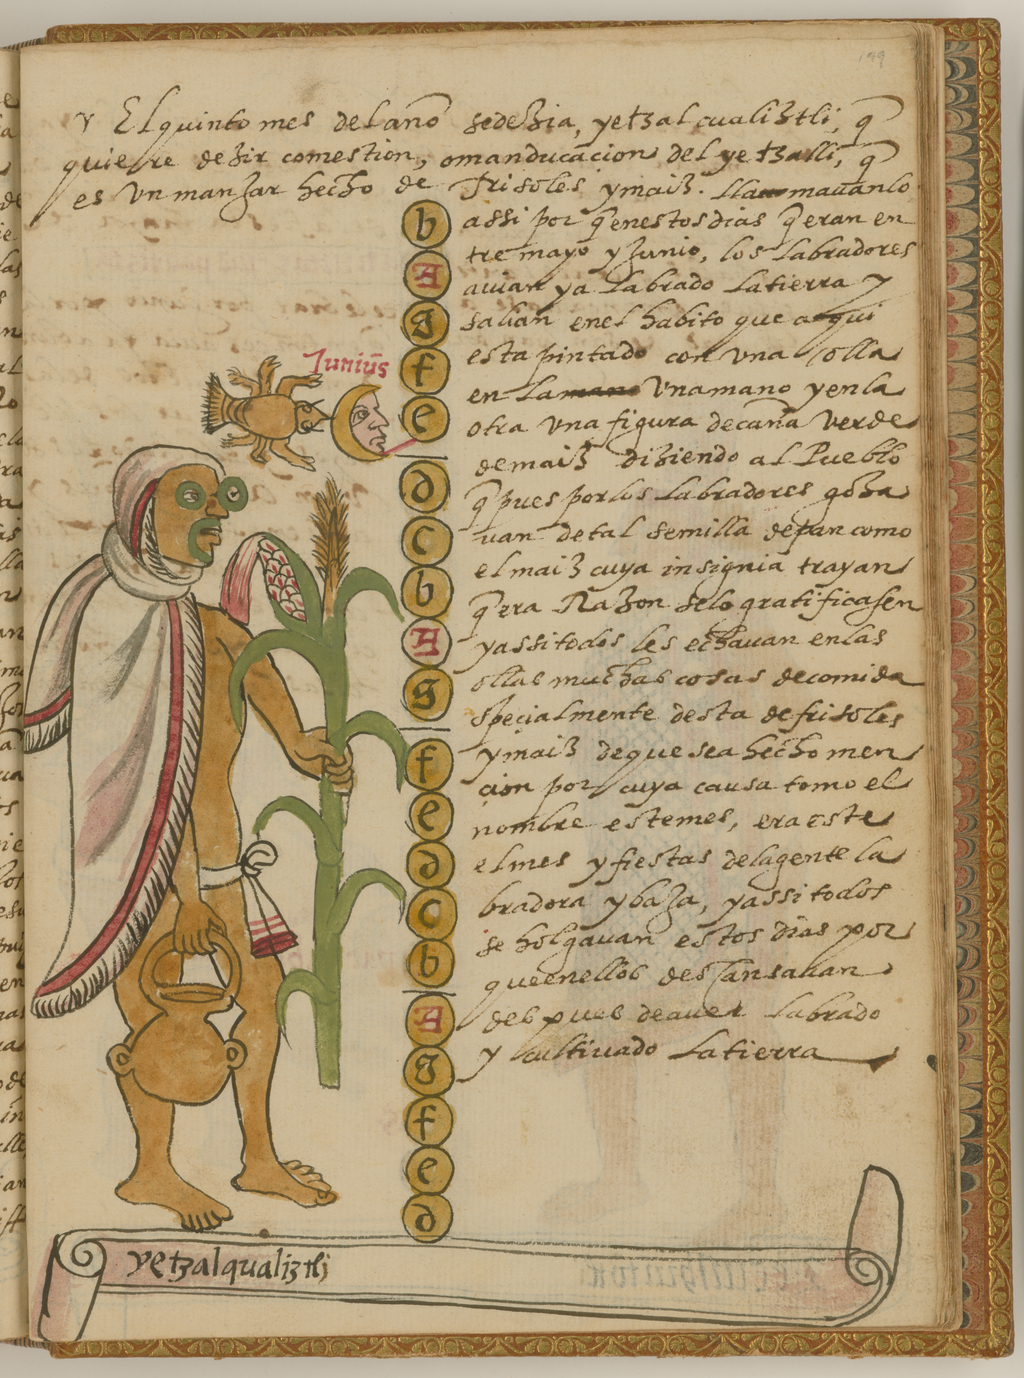 Y El quinto mes del año sedezia, yetzalcualiztli, q̃
quiere dezir comestion, omanducacion del yetzalli, q̃
es un manjar hecho de frisoles ymaiz. llamavanlo
assi por q̃enestosdias q̃eran en
tre mayo y Junio, los labradores
avian ya labrado latierra y
salian enel habito que aqui
esta pintado con una olla
en la unamano yenla
otra una figura decaña verde
demaiz diziendo al Pueblo
q̃ pues porlos labradores goza
van detal semilla depan como
elmaiz cuya insignia trayan
q̃era Razon selo gratificasen
yassitodos les echavan enlas
ollas muchas cosas decomida
specialmente desta defrisoles
ymaiz dequeseahecho men
cion por cuya causa tomo el
nombre estemes, era este
elmes yfiestas delagente la
bradora ybaza, yassitodos
se holgavan estos dias por
queenellos descansavan
despues deaver labrado
y cultivado latierra
b
A
g
f
e
d
c
b
A
g
f
e
d
c
b
A
g
f
e
d
Juniũs
yetzalqualiztli